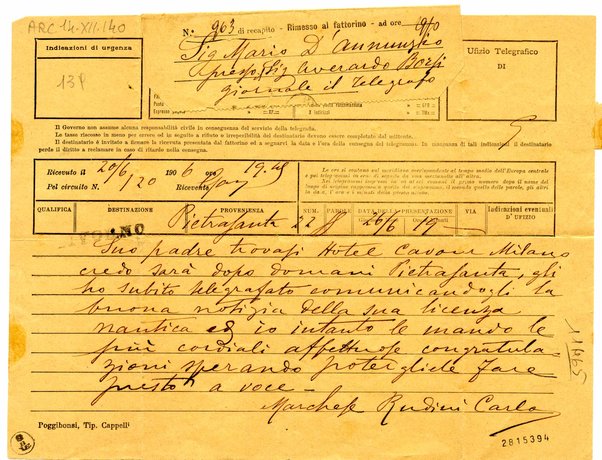 ARC 14-XII.140
N. 963 di recapito - Rimesso al fattorino - ad ore
Sig Mario D'Annunzio
Presso Sig Averardo Borsi
giornale il Telegrafo
Indicazioni di urgenza
Ufizio Telegrafico
DI
Il Governo non assume alcuna responsabilità civile in conseguenza del servizio della telegrafia.
Le tasse riscosse in meno per errore od in seguito a rifiuto o irreperibilità del destinatario devono essere completate dal mittente.
Il destinatario è invitato a firmare la ricevuta presentata dal fattorino ed a segnarvi la data e l'ora della consegna del telegramma. In mancanza di tali indicazioni il destinatario
perde il diritto a reclamare in caso di ritardo nella consegna.
Ricevuto il 20/6 1906 ore 19.45
Pel circuito N. 120 Ricevente
Le ore si contano sul meridiano corrispondente al tempo medio dell'Europa centrale
QUALIFICA DESTINAZIONE PROVENIENZA NUM. PAROLE DATA DELLA PRESENTAZIONE VIA Indicazioni eventuali D'UFIZIO
LIVORNO Pietrasanta 22 20/6 19
Suo padre trovasi Hotel Cavour Milano
credo sarà dopo domani Pietrasanta, gli
ho subito telegrafato comunicandogli la
buona notizia della sua licenza
nautica ed io intanto le mando le
più cordiali affettuose congratula
zioni sperando potergliele fare
presto a voce -
Marchese Rudini Carlo
11465
Poggibonsi, Tip. Cappelli
2815394